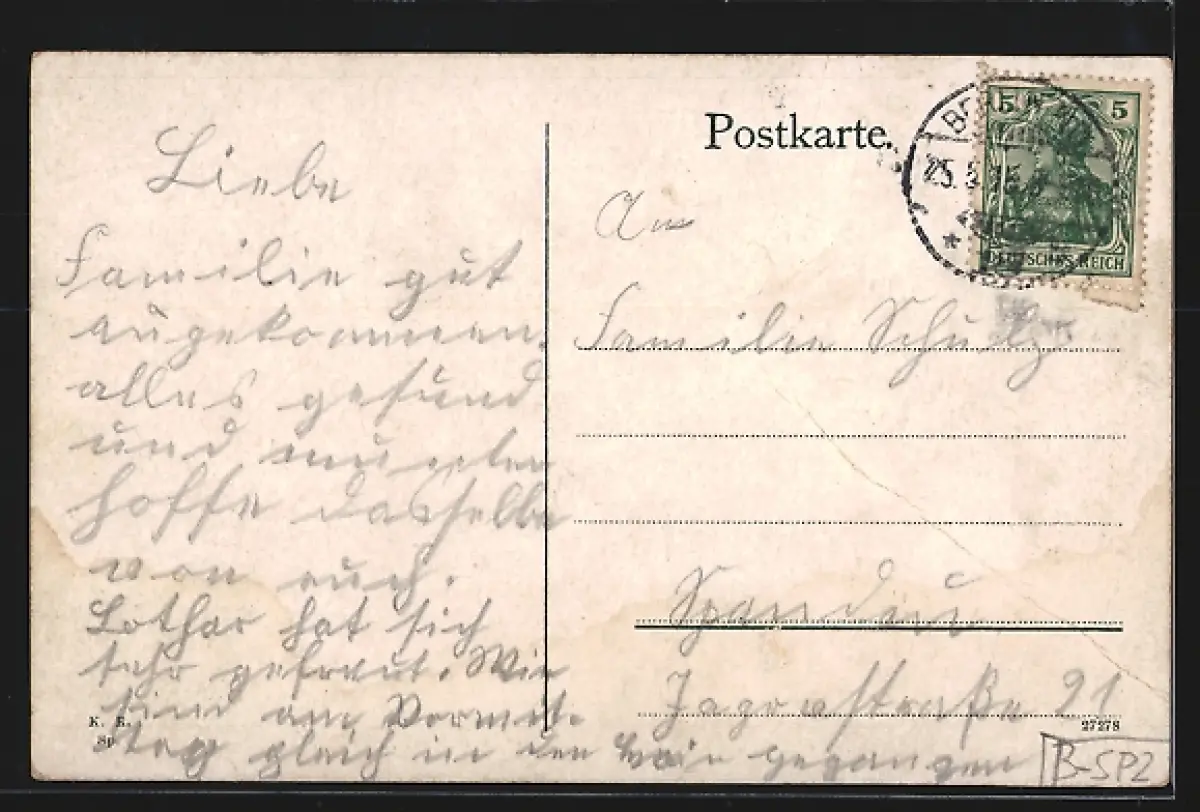 Postkarte.
5 5
25.
DEUTSCHES REICH
Liebe
Familie gut
angekommen.
alles gesund
und munter
hoffe dasselbe
von euch.
Lothar hat sich
sehr gefreut. Wir
sind am Vormit-
tag gleich in den gegangen
An
Familie Schulz
Spandau
Jagowstraße 21
K. R.
Sp
27278
B-SP2